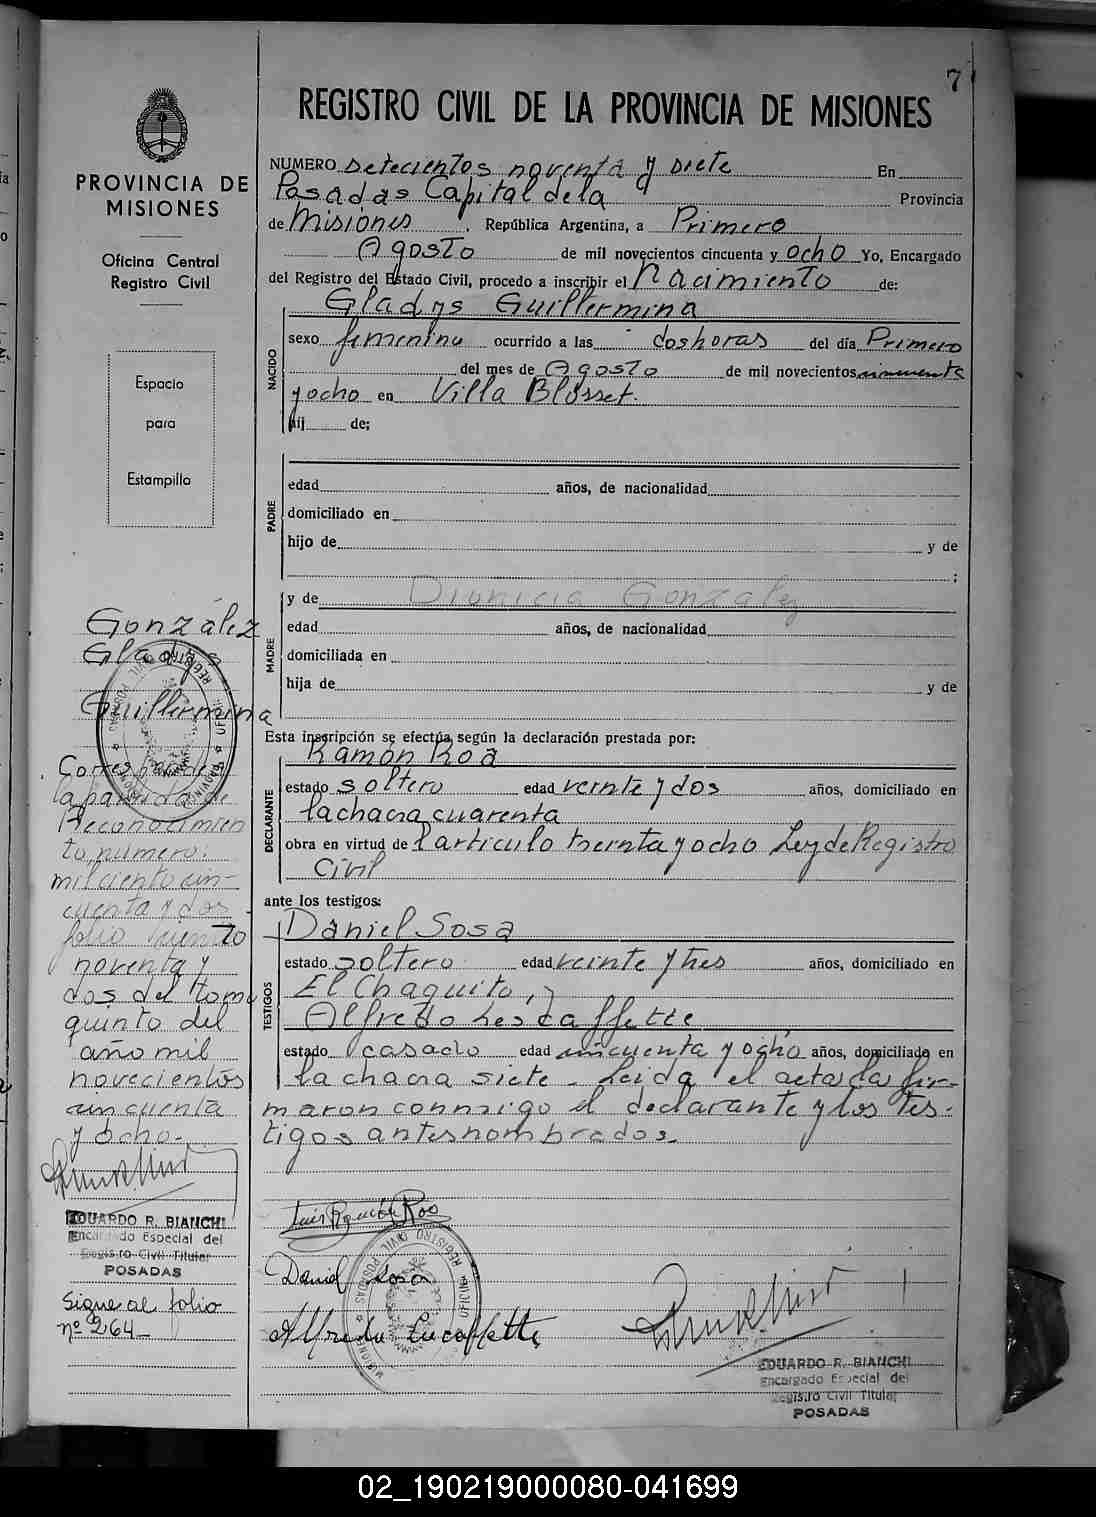 7
REGISTRO CIVIL DE LA PROVINCIA DE MISIONES
PROVINCIA DE
MISIONES
Oficina Central
Registro Civil
Espacio
para
Estampilla
González
Gladys
Guillermina
Corresponde
la partida de
Reconocimien
to número:
mil ciento cin-
cuenta y dos
folio ciento
noventa y
dos del tomo
quinto del
año mil
novecientos
cincuenta
y ocho.-
EDUARDO R. BIANCHI
Encargado Especial del
Registro Civil Titular
POSADAS
Sigue al folio
nº 264-
NUMERO Setecientos noventa y siete En
Posadas Capital de la Provincia
de Misiones, República Argentina, a Primero
Agosto de mil novecientos cincuenta y ocho Yo, Encargado
del Registro del Estado Civil, procedo a inscribir el Nacimiento de:
NACIDO
Gladys Guillermina
sexo femenino ocurrido a las dos horas del día Primero
del mes de Agosto de mil novecientos
y ocho en Villa Blosset.
hij de;
PADRE
edad años, de nacionalidad
domiciliado en
hijo de y de
;
MADRE
y de Dionicia González
edad años, de nacionalidad
domiciliada en
hija de y de
Esta inscripción se efectúa según la declaración prestada por:
DECLARANTE
Ramón Roa
estado soltero edad veinte y dos años, domiciliado en
la chacra cuarenta
obra en virtud de l artículo treinta y ocho Ley de Registro
Civil
ante los testigos:
TESTIGOS
Daniel Sosa
estado soltero edad veinte y tres años, domiciliado en
El Chaquito, y
Alfredo Lescaffette
estado casado edad cincuenta y ocho años, domiciliado en
la chacra siete. Leida el acta la fir-
maron conmigo el declarante y los tes-
tigos antes nombrados.-
Daniel Sosa
EDUARDO R. BIANCHI
Encargado Especial del
Registro Civil Titular
POSADAS
02_190219000080-041699